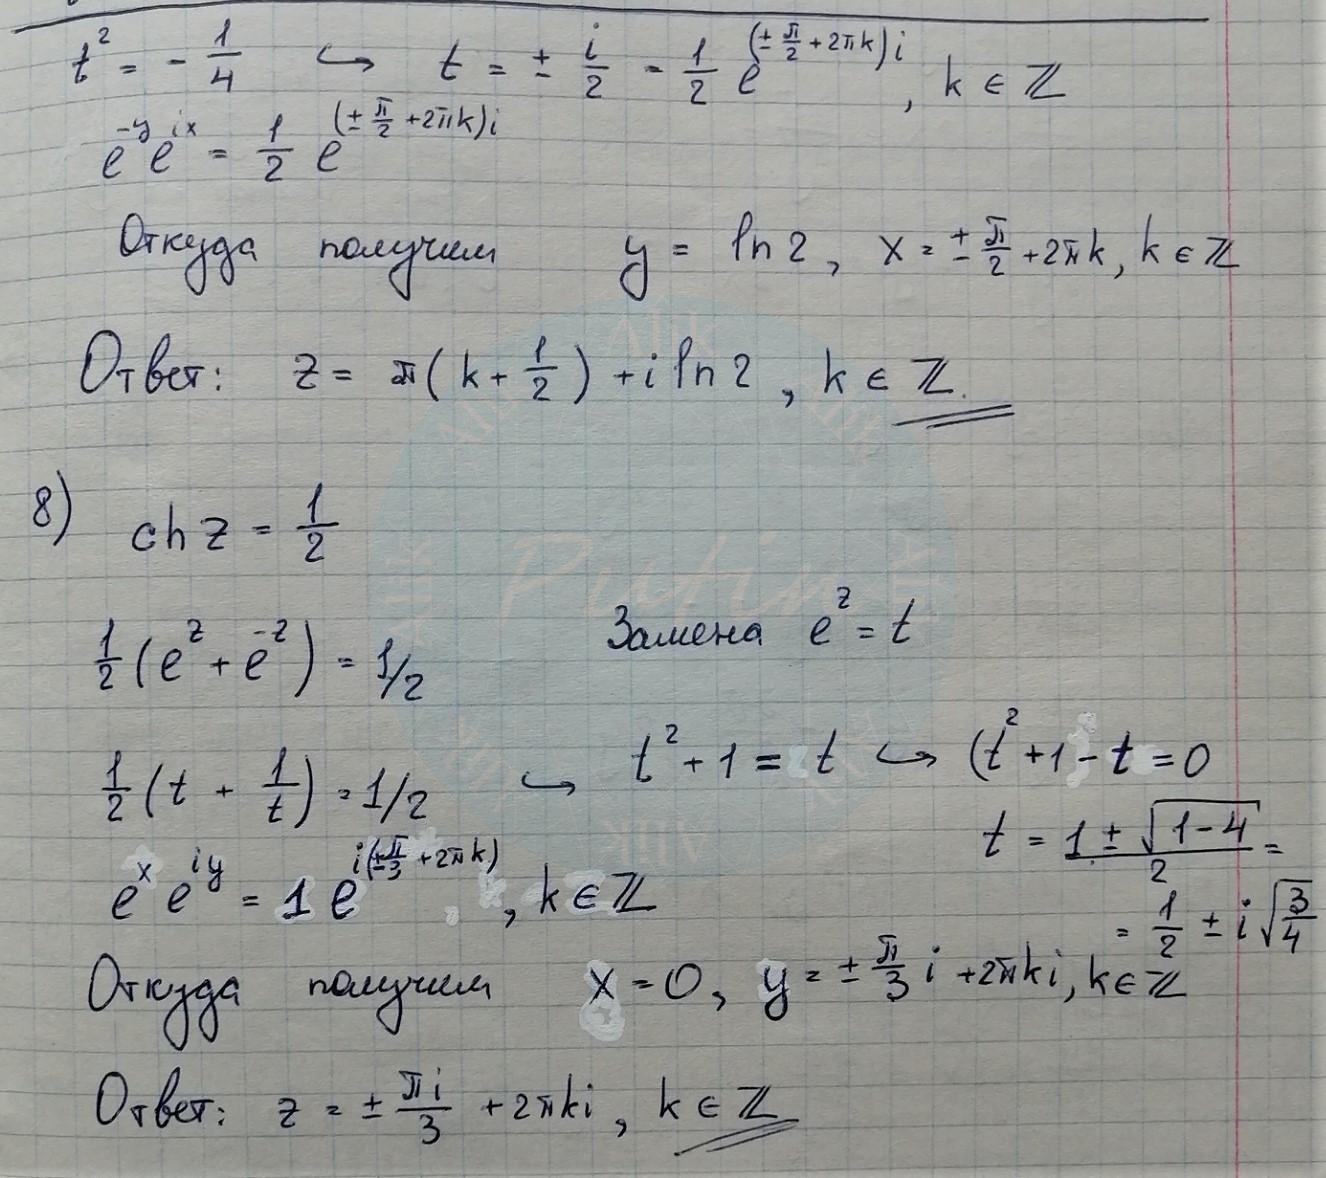 t² = - 1/4 ↪ t = ± i/2 = 1/2 e^{(± π/2 + 2πk)i}, k ∈ ℤ
e^{-y} e^{ix} = 1/2 e^{(± π/2 + 2πk)i}
Откуда получим y = ln 2, x = ± π/2 + 2πk, k ∈ ℤ
Ответ: z = π(k + 1/2) + i ln 2, k ∈ ℤ.
8) ch z = 1/2
1/2 (e^z + e^{-z}) = 1/2 Замена e^z = t
1/2 (t + 1/t) = 1/2 ↪ t² + 1 = t ↪ (t² + 1 - t = 0
t = (1 ± √(1-4))/2 =
= 1/2 ± i √(3/4)
e^x e^{iy} = 1 e^{i(± π/3 + 2πk)}, k ∈ ℤ
Откуда получим x = 0, y = ± π/3 i + 2πki, k ∈ ℤ
Ответ: z = ± πi/3 + 2πki, k ∈ ℤ
Putin